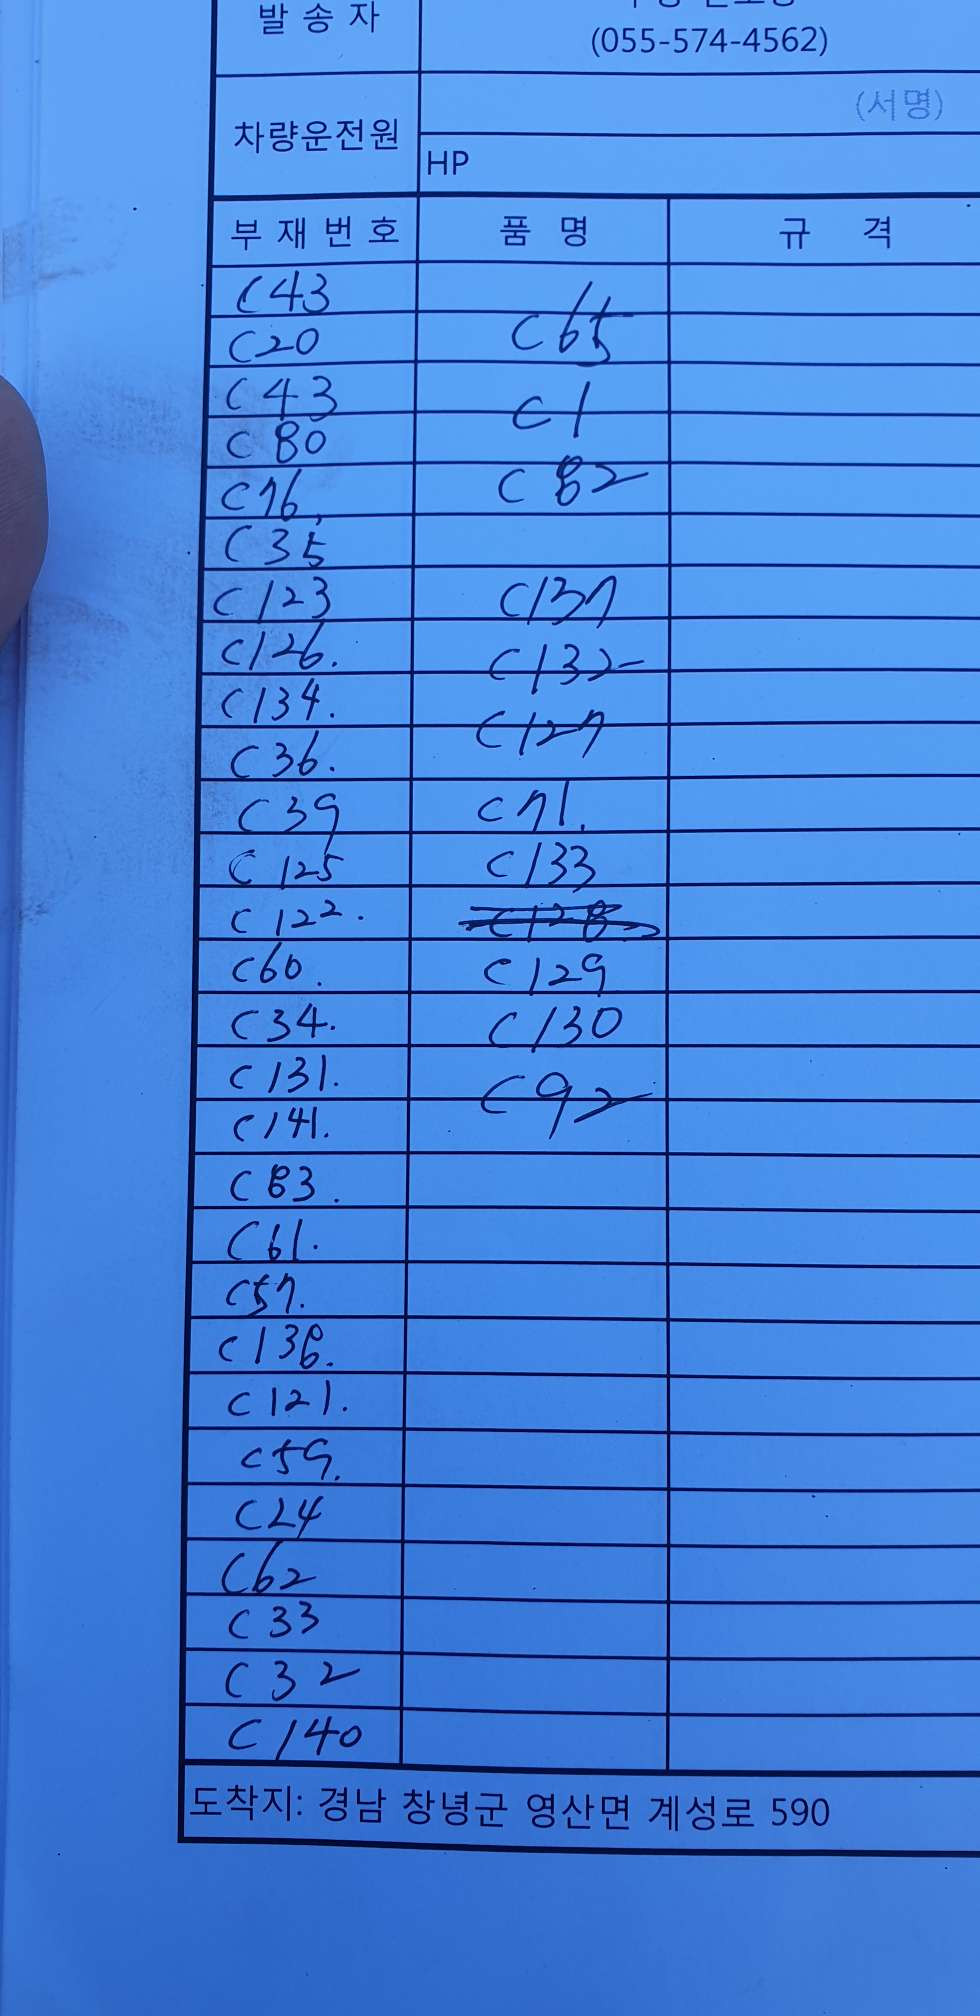 발 송 자
(055-574-4562)
(서명)
차량운전원
HP
부 재 번 호 품 명 규 격
C43
C65
C20
C43
C1
C80
C76 C82
C35
C123 C137
C126. C132
C134. C127
C36.
C39 C71.
C125 C133
C122. C128
C60. C129
C34. C130
C131. C92
C141.
C83.
C61.
C57.
C121.
C59.
C24
C62
C33
C32
C140
도착지: 경남 창녕군 영산면 계성로 590